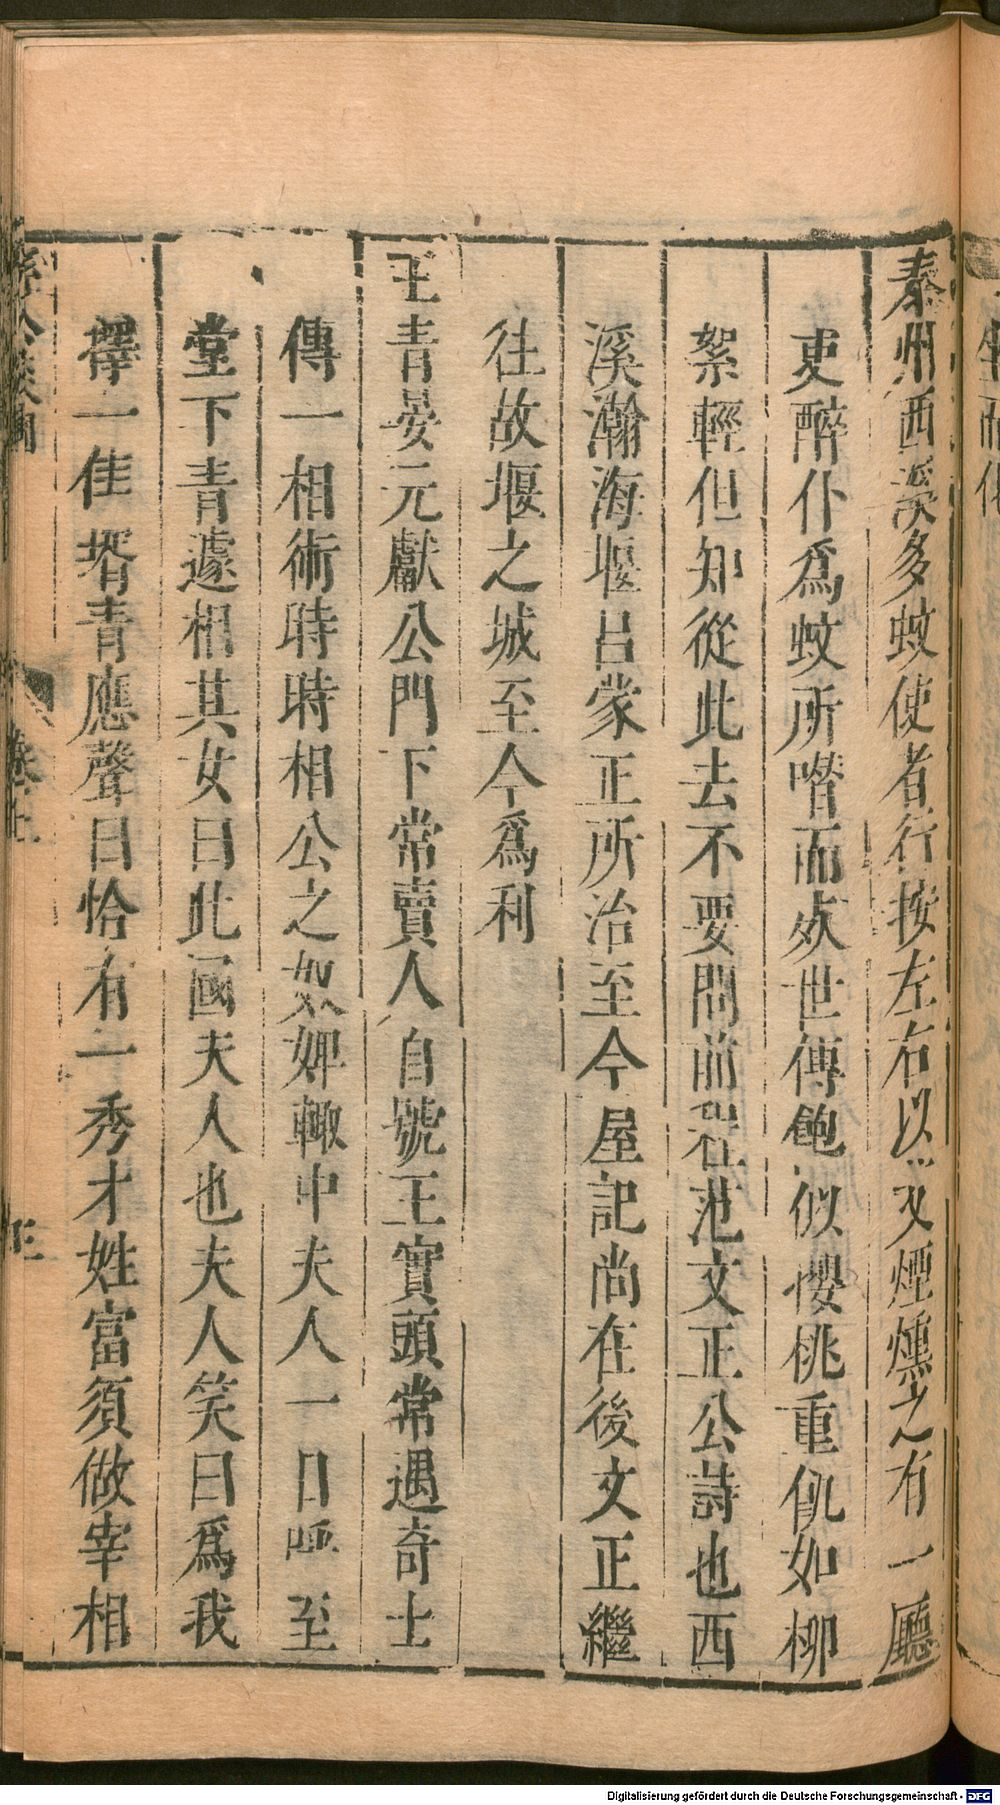 秦州西溪多蚊使者行按左右以艾煙燻之有一廳
吏醉仆爲蚊所噆而死世傳飽似櫻桃重飢如柳
絮輕但知從此去不要問前程范文正公詩也西
溪瀚海堰吕蒙正所治至今屋記尚在後文正繼
往故堰之城至今爲利
王青晏元獻公門下常賣人自號王實頭常遇奇士
傳一相術時時相公之奴婢輙中夫人一日呼至
堂下青遽相其女曰此國夫人也夫人笑曰爲我
擇一佳壻青應聲曰恰有一秀才姓富須做宰相
孫公談圃
卷上
Digitalisierung gefördert durch die Deutsche Forschungsgemeinschaft - DFG